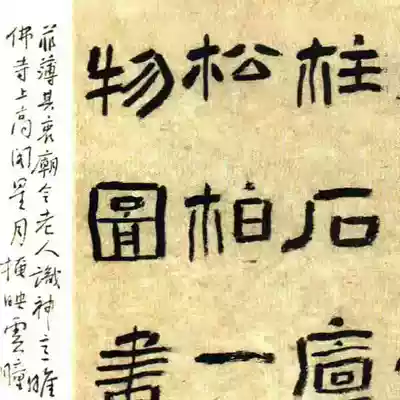 柱石
松柏一
物圖書
菲薄其衷廟令老人識神意睢
佛寺上高閣星月掩映雲曈